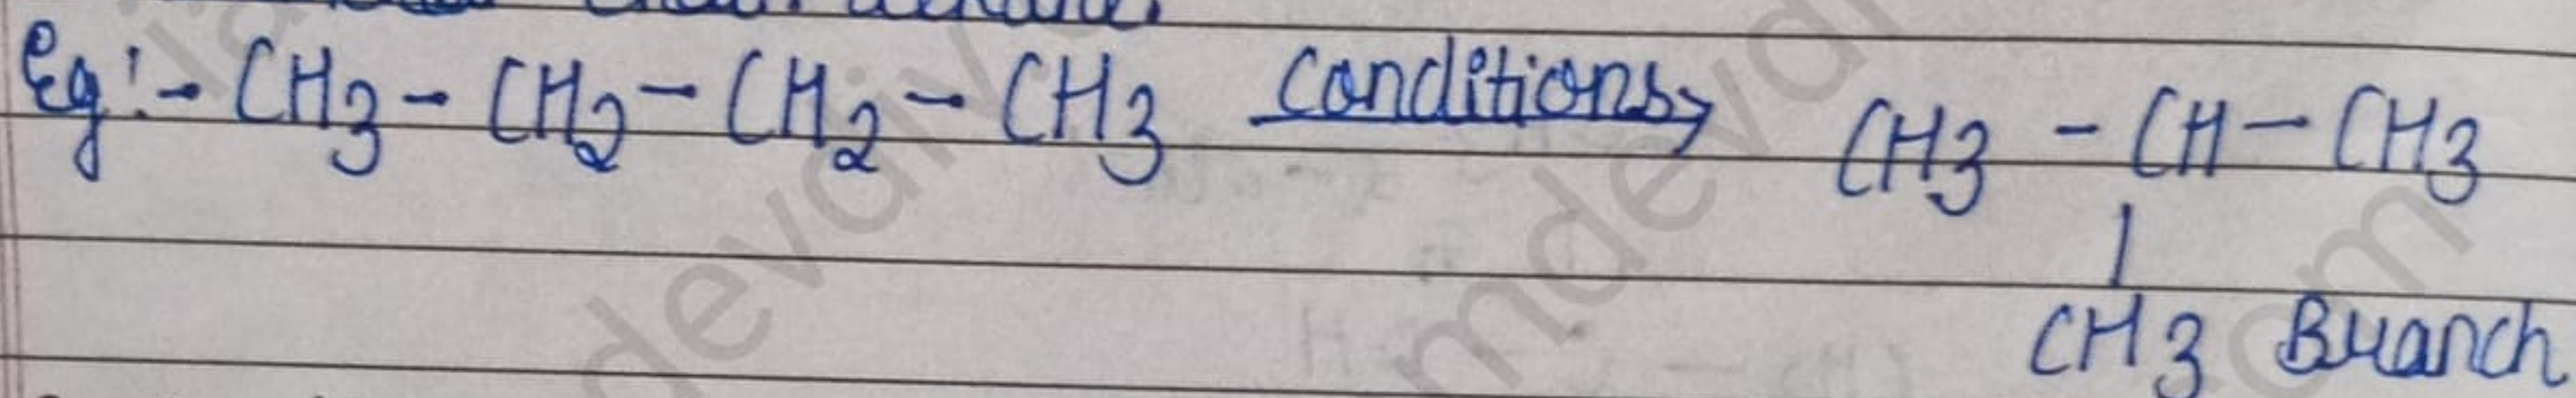 Eg:- CH3 - CH2 - CH2 - CH3 Conditions→ CH3 - CH - CH3
|
CH3 Branch